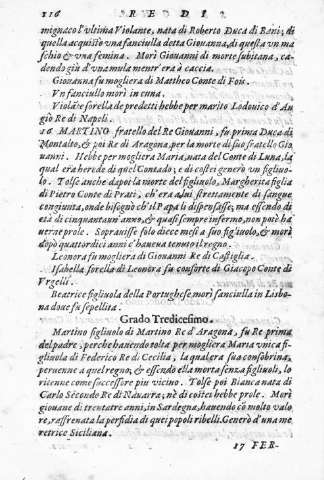 116 R E D I
mignaco l'vltima Violante, nata di Roberto Duca di Bari; di
quella acquistò vna fanciulla detta Giouanna, di questa vn ma
schio & vna femina. Morì Giouanni di morte subitana, ca-
dendo giù d'vna mula mentr'era à caccia.
Giouanna fu mogliera di Mattheo Conte di Fois.
Vn fanciullo morì in cuna.
Violāte sorella de predetti hebbe per marito Lodouico d'An
giò Re di Napoli.
16 MARTINO fratello del Re Giouanni, fu prima Duca di
Montalto, & poi Re di Aragona, per la morte di suo fratello Gio
uanni. Hebbe per mogliera Maria, nata del Conte di Luna, la
qual era herede di quel Contado; e di costei generò vn figliuo-
lo. Tolse anche dapoi la morte del figliuolo, Margherita figlia
di Pietro Conte di Prati, ch'era à lui strettamente di sangue
congiunta, onde bisognò ch'il Papa li dispensasse; ma essendo di
età di cinquantaun'anno, & quasi sempre infermo, non potè ha
uerne prole. Soprauisse solo dieci mesi a suo figliuolo, & morì
dopò quattordici anni c'haueua tenuto il regno.
Leonora fu mogliera di Giouanni Re di Castiglia.
Isabella sorella di Leonora fu consorte di Giacopo Conte di
Vrgelli.
Beatrice figliuola della Portughese morì fanciulla in Lisbo-
na doue fu sepellita.
Grado Tredicesimo.
Martino figliuolo di Martino Re d'Aragona, fu Re prima
del padre; perche hauendo tolta per mogliera Maria vnica fi-
gliuola di Federico Re di Cecilia, la qual era sua consobrina,
peruenne a quel regno; & essendo ella morta senza figliuoli, lo
ritenne come successore piu vicino. Tolse poi Bianca nata di
Carlo Secondo Re di Nauarra; nè di costei hebbe prole. Morì
giouane di trentatre anni, in Sardegna, hauendo cō molto valo
re, raffrenata la perfidia di quei popoli ribelli. Generò d'una me
retrice Siciliana.
17 FER-